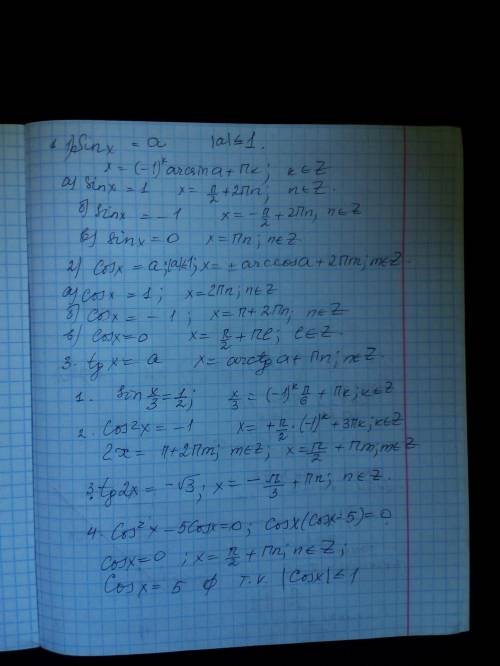 1) Sinx = a |a|≤1.
x = (-1)^k arcsina + πk; k∈Z
а) Sinx = 1 x = π/2 + 2πn; n∈Z.
б) Sinx = -1 x = -π/2 + 2πn, n∈Z
в) Sinx = 0 x = πn; n∈Z.
2) Cosx = a; |a|≤1; x = ± arccosa + 2πm; m∈Z.
а) Cosx = 1; x = 2πn; n∈Z
б) Cosx = -1; x = π + 2πn; n∈Z
в) Cosx = 0 x = π/2 + πl; l∈Z.
3. tgx = a x = arctga + πn; n∈Z.
1. Sin x/3 = 1/2; x/3 = (-1)^k π/6 + πk; k∈Z
2. Cos2x = -1 x = + π/2 · (-1)^k + 3πk; k∈Z
2x = π + 2πm; m∈Z; x = π/2 + πm; m∈Z
3. tg2x = -√3; x = -π/3 + πn; n∈Z.
4. Cos²x - 5Cosx = 0; Cosx(Cosx-5) = 0
Cosx = 0; x = π/2 + πn; n∈Z;
Cosx = 5 ∅ т.к. |Cosx| ≤ 1